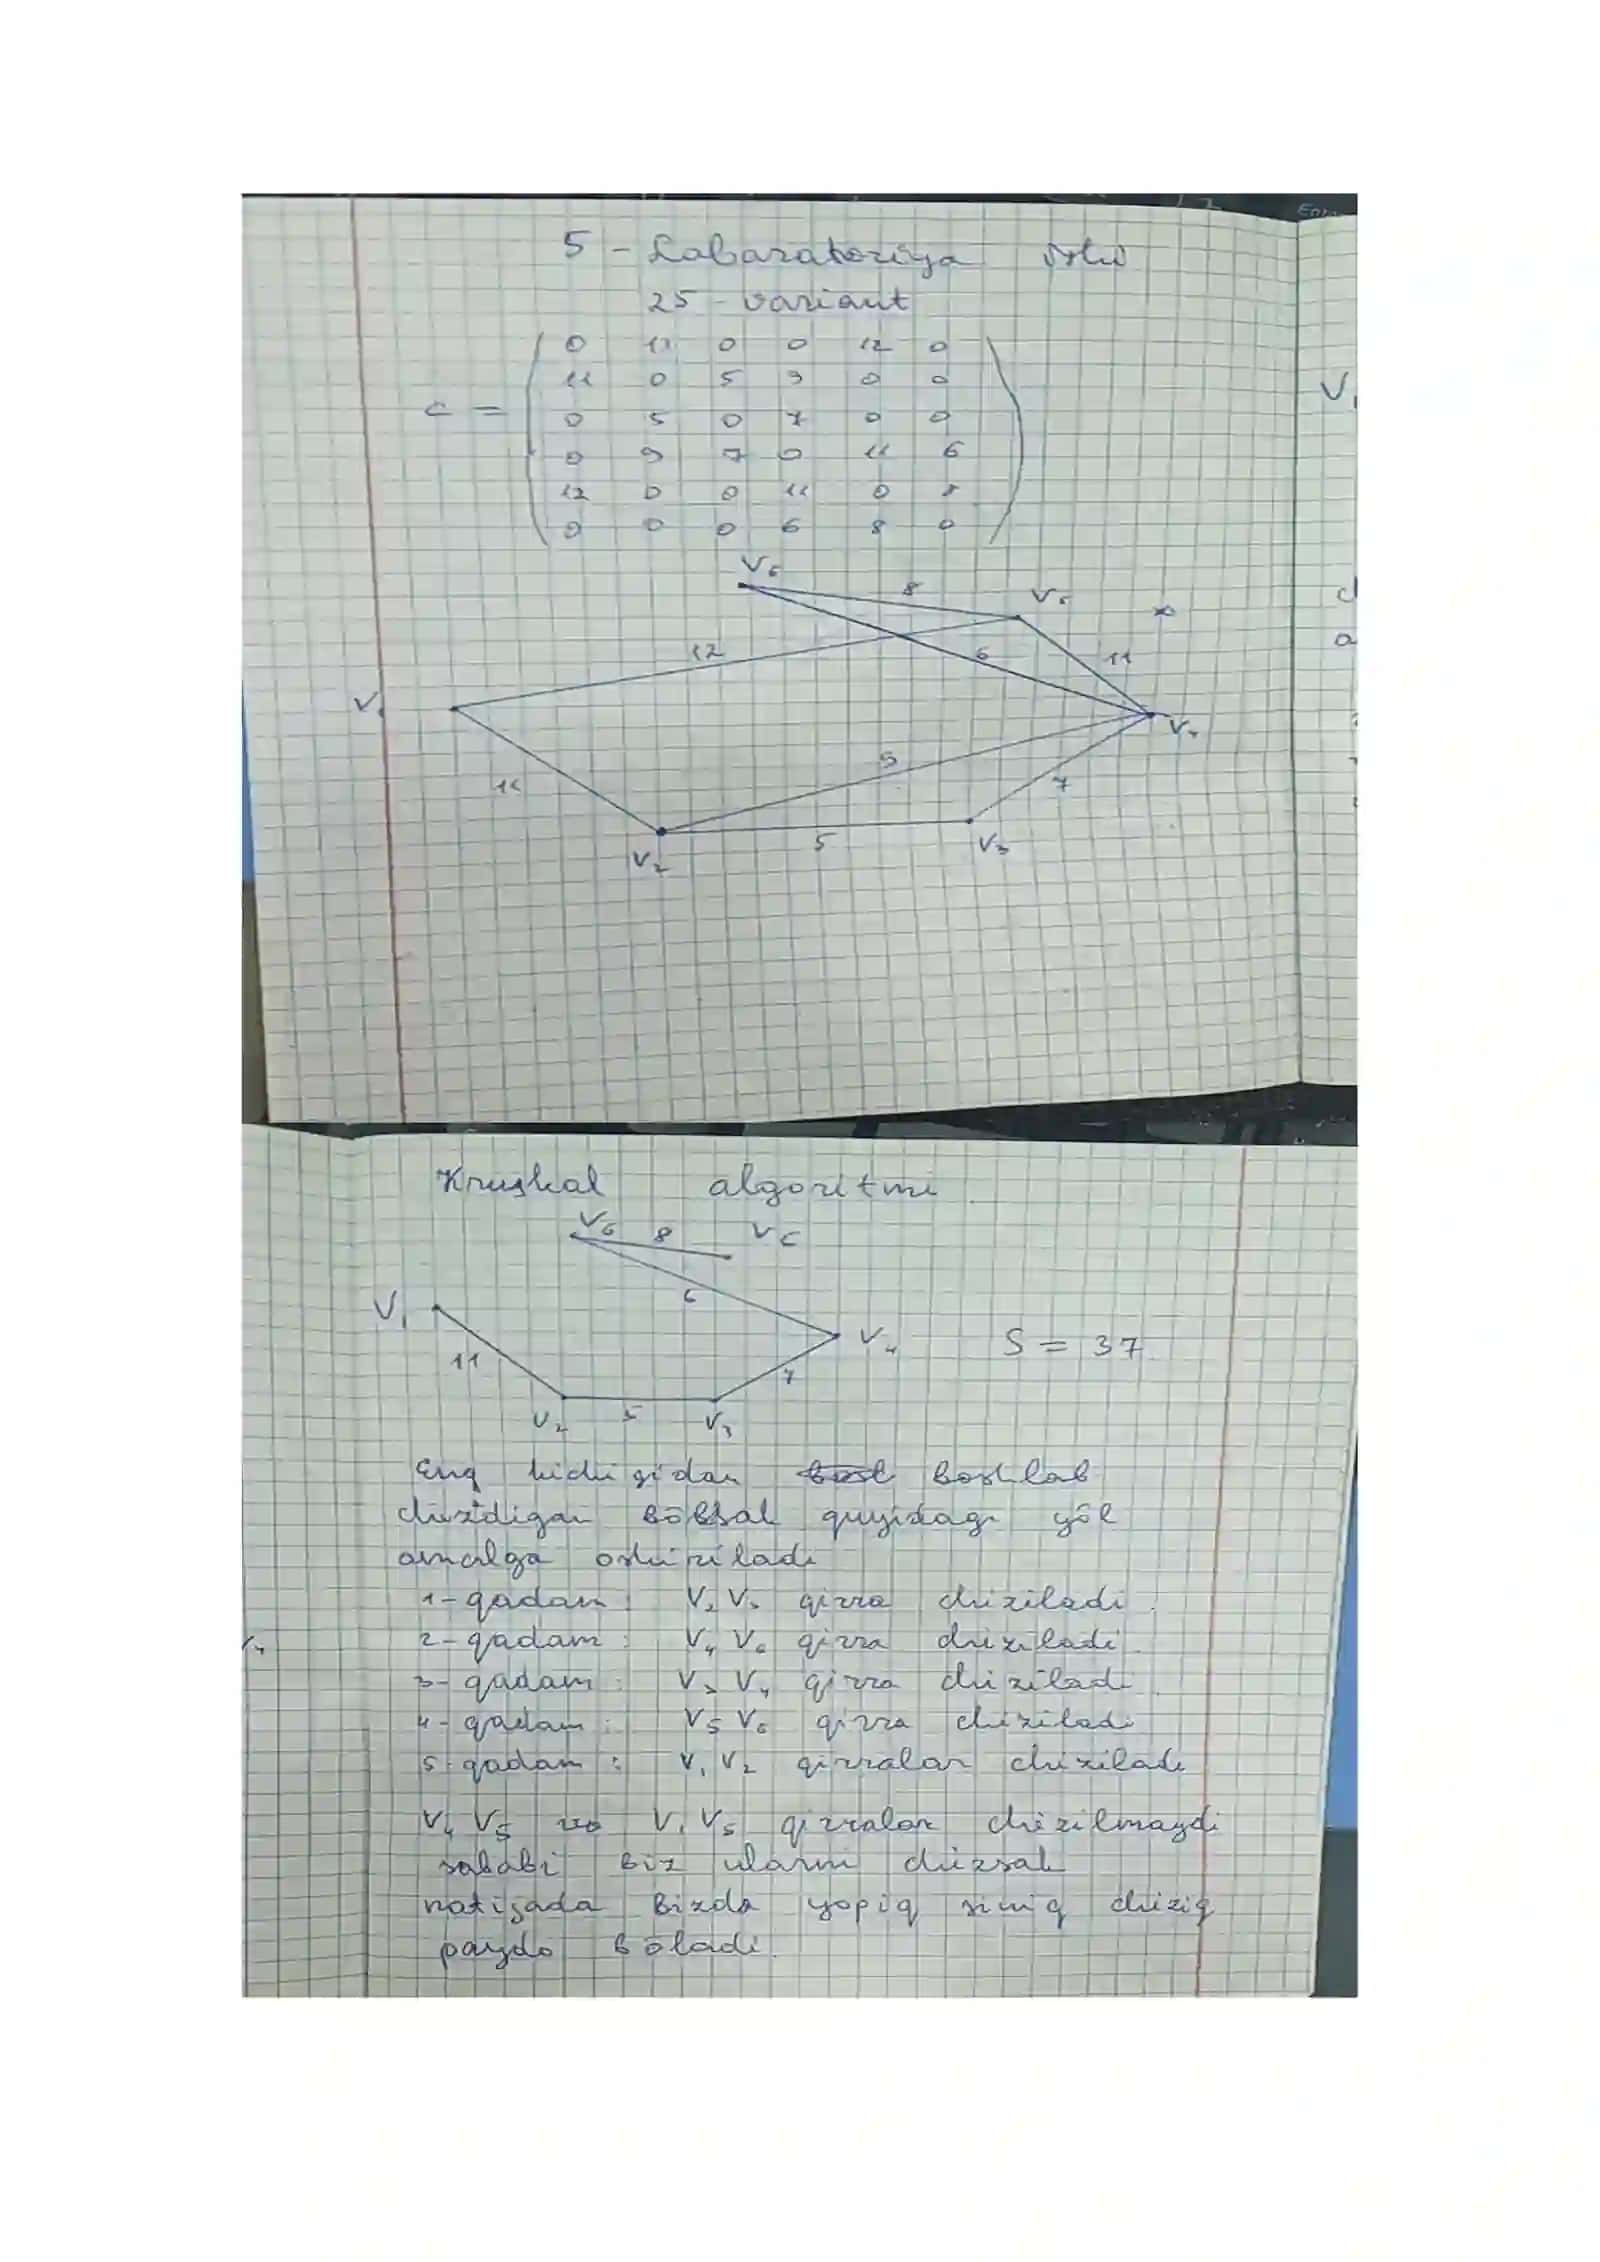 5 - Labaratoriya ishi
25 - variant
0 11 0 0 12 0
11 0 5 9 0 0
c =
0 5 0 7 0 0
0 9 7 0 11 6
12 0 0 11 0 8
0 0 0 6 8 0
V6 8 V5
12 6 11
V1 V4
9
11 7
5 V3
V2
Kruskal algoritmi
V6 8 V5
6
V1 V4 S = 37
11 7
V2 5 V3
Eng kichigidan boshlab
chizdigan bõlsak quyidagi yõl
amalga oshiriladi
1 - qadam : V2 V3 qirra chiziladi
2 - qadam : V4 V6 qirra chiziladi
3 - qadam : V3 V4 qirra chiziladi
4 - qadam : V5 V6 qirra chiziladi
5 - qadam : V1 V2 qirralar chiziladi
V4 V5 va V1 V5 qirralar chizilmaydi
sababi biz ularni chizsak
natijada bizda yopiq siniq chiziq
paydo bõladi.